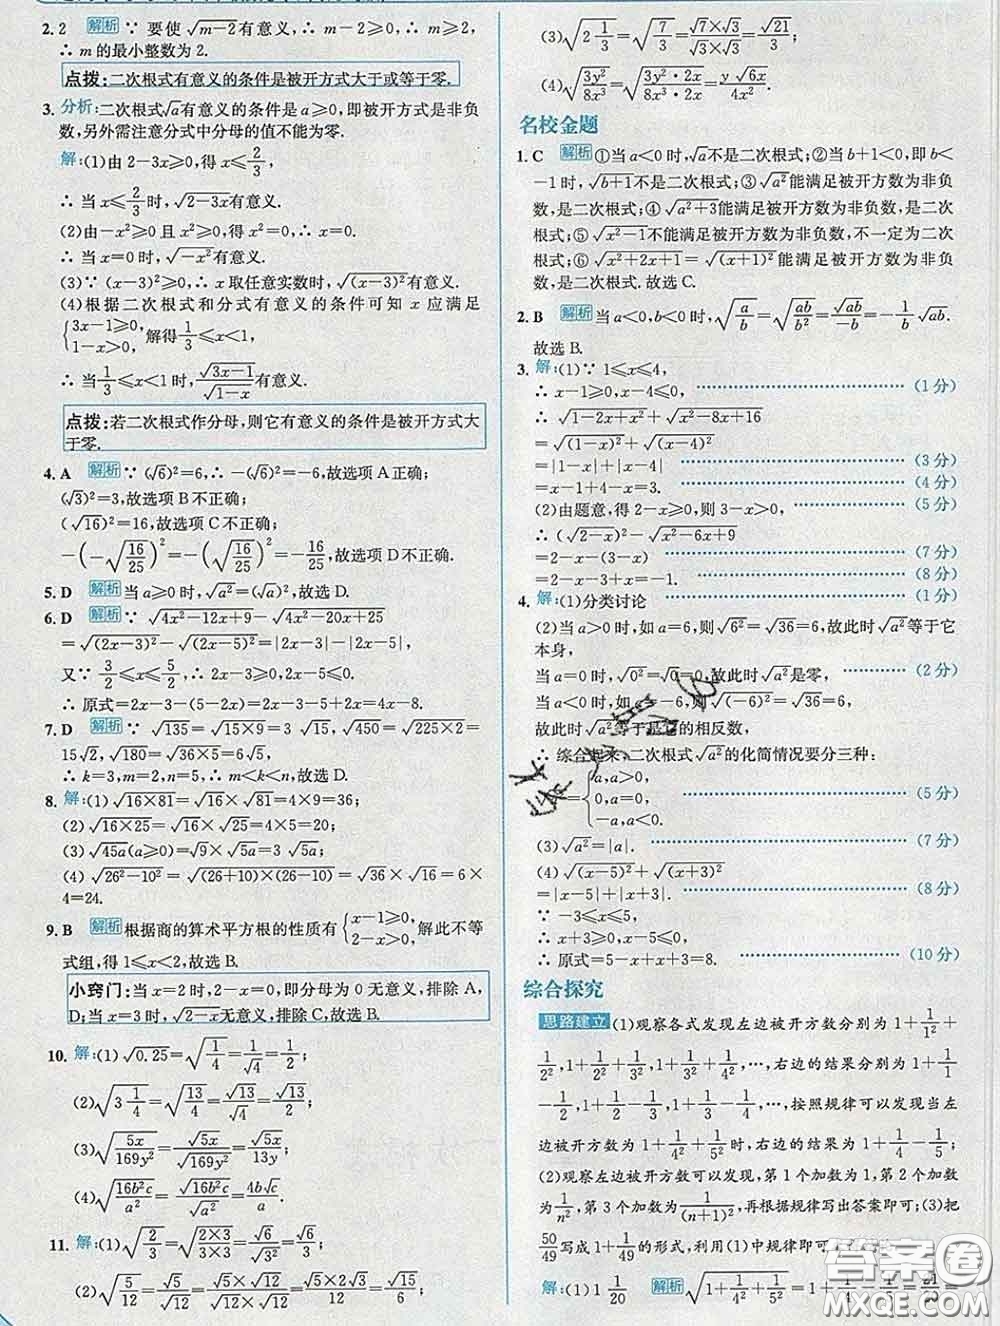 2. 2 解析 ∵ 要使√(m-2)有意义,∴ m-2≥0,∴ m≥2,
∴ m 的最小整数为 2.
点拨:二次根式有意义的条件是被开方式大于或等于零.
3. 分析:二次根式√a有意义的条件是 a≥0,即被开方式是非负
数,另外需注意分式中分母的值不能为零.
解:(1)由 2-3x≥0,得 x≤2/3,
∴ 当 x≤2/3 时,√(2-3x)有意义.
(2)由-x²≥0 且 x²≥0,得 x²=0.∴ x=0.
∴ 当 x=0 时,√(-x²)有意义.
(3)∵ (x-3)²≥0,∴ x 取任意实数时,√((x-3)²)有意义.
(4)根据二次根式和分式有意义的条件可知 x 应满足
{3x-1≥0, 1-x>0, 解得 1/3≤x<1,
∴ 当 1/3≤x<1 时,√(3x-1)/√(1-x)有意义.
点拨:若二次根式作分母,则它有意义的条件是被开方式大
于零.
4. A 解析 ∵ (√6)²=6,∴ -(√6)²=-6,故选项 A 正确;
(√3)²=3,故选项 B 不正确;
(√16)²=16,故选项 C 不正确;
-(-√(16/25))²=-(√(16/25))²=-16/25,故选项 D 不正确.
5. D 解析 当 a≥0 时,√a²=(√a)²,故选 D.
6. D 解析 ∵ √(4x²-12x+9)-√(4x²-20x+25)
=√((2x-3)²)-√((2x-5)²)=|2x-3|-|2x-5|,
又∵ 3/2≤x≤5/2,∴ 2x-3≥0,2x-5≤0.
∴ 原式=2x-3-(5-2x)=4x-8.故选 D.
7. D 解析 ∵ √135=√(15×9)=3 √15,√450=√(225×2)=
15√2,√180=√(36×5)=6√5,
∴ k=3,m=2,n=5,∴ m<k<n.故选 D.
8. 解:(1)√(16×81)=√16×√81=4×9=36;
(2)√(16×25)=√16×√25=4×5=20;
(3)√(45a)(a≥0)=√9×√(5a)=3 √(5a);
(4)√(26²-10²)=√((26+10)×(26-10))=√(36×16)=6×
4=24.
9. B 解析 根据商的算术平方根的性质有{x-1≥0, 2-x>0, 解此不等
式组,得 1≤x<2,故选 B.
小窍门:当 x=2 时,2-x=0,即分母为 0 无意义,排除 A,
D;当 x=3 时,√(2-x)无意义,排除 C,故选 B.
10. 解:(1)√0.25=√(1/4)=√1/√4=1/2;
(2)√(3 1/4)=√(13/4)=√13/√4=√13/2;
(3)√(5x/169y²)=√(5x)/√(169y²)=√(5x)/13y;
(4)√(16b²c/a²)=√(16b²c)/√a²=4b√c/a.
11. 解:(1)√(2/3)=√((2×3)/(3×3))=√6/√3²=√6/3;
(2)√(5/12)=√5/√12=(√5×√12)/(√12×√12)=2√15/12=√15/6;
(3)√(2 1/3)=√(7/3)=(√7×√3)/(√3×√3)=√21/3;
(4)√(3y²/8x³)=√((3y²·2x)/(8x³·2x))=y√(6x)/4x².
名校金题
1. C 解析 ①当 a<0 时,√a不是二次根式;②当 b+1<0,即 b<
-1 时,√(b+1)不是二次根式;③√a²能满足被开方数为非负
数,是二次根式;④√(a²+3)能满足被开方数为非负数,是二次
根式;⑤√(x²-1)不能满足被开方数为非负数,不一定为二次
根式;⑥√(x²+2x+1)=√((x+1)²)能满足被开方数为非负数,
是二次根式.故选 C.
2. B 解析 当 a<0,b<0 时,√(a/b)=√(ab/b²)=√(ab)/(-b)=-1/b √(ab).
故选 B.
3. 解:(1)∵ 1≤x≤4,
∴ x-1≥0,x-4≤0. (1 分)
∴ √(1-2x+x²)+√(x²-8x+16)
=√((1-x)²)+√((x-4)²)
=|1-x|+|x-4| (3 分)
=x-1+4-x=3. (4 分)
(2)由题意,得 2-x≥0,则 3-x>0, (5 分)
∴ (√(2-x))²-√(x²-6x+9)
=2-x-(3-x) (7 分)
=2-x-3+x=-1. (8 分)
4. 解:(1)分类讨论 (1 分)
(2)当 a>0 时,如 a=6,则√6²=√36=6,故此时√a²等于它
本身,
当 a=0 时,√0²=√0=0,故此时√a²是零, (2 分)
当 a<0 时,如 a=-6,则√((-6)²)=√36=6,
故此时√a²等于是它的相反数,
∴ 综合起来,二次根式√a²的化简情况要分三种:
{a,a>0,
0,a=0, (5 分)
-a,a<0.
(3)√a²=|a|. (7 分)
(4)√((x-5)²)+√((x+3)²)
=|x-5|+|x+3|. (8 分)
∵ -3≤x≤5,
∴ x+3≥0,x-5≤0,
∴ 原式=5-x+x+3=8. (10 分)
综合探究
思路建立 (1)观察各式发现左边被开方数分别为 1+1/1²+
1/2²,1+1/2²+1/3²,1+1/3²+1/4²,…,右边的结果分别为 1+1/1
-1/2,1+1/2-1/3,1+1/3-1/4,…,按照规律可以发现当左
边被开方数为 1+1/4²+1/5²时,右边的结果为 1+1/4-1/5;
(2)观察左边被开方数可以发现,第 1 个加数为 1,第 2 个加数
为1/n²,第 3 个加数为1/(n+1)²,再根据规律写出答案即可;(3)把
50/49写成 1+1/49的形式,利用(1)中规律即可
解:(1)1 1/20 解析 √(1+1/4²+1/5²)=1+1/4-1/5=21/20
答案圈
MXQE.COM